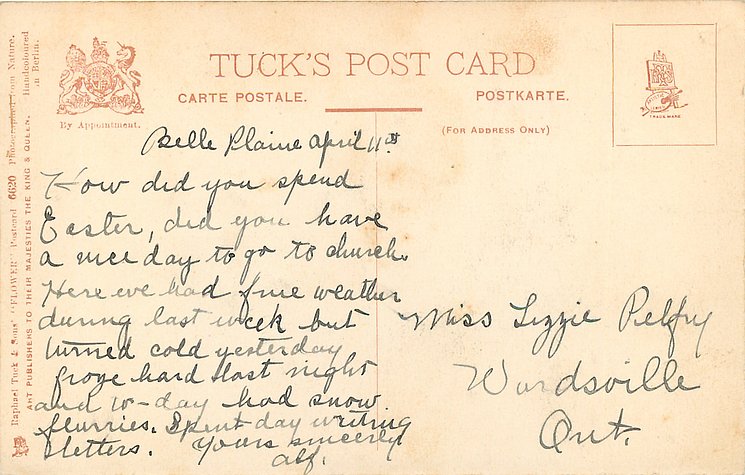 TUCK'S POST CARD
CARTE POSTALE.
POSTKARTE.
By Appointment.
(FOR ADDRESS ONLY)
TRADE MARK
Raphael Tuck & Sons' "FLOWER" Postcard 6620 Photographed from Nature. Handcoloured in Berlin.
ART PUBLISHERS TO THEIR MAJESTIES THE KING & QUEEN.
Belle Plaine April 11st
How did you spend
Easter, did you have
a nice day to go to church.
Here we had fine weather
during last week but
turned cold yesterday
froze hard last night
and to-day had snow
flurries. Spent day writing
letters. Yours sincerely
Alf.
Miss Lizzie Pelfry
Wardsville
Ont.